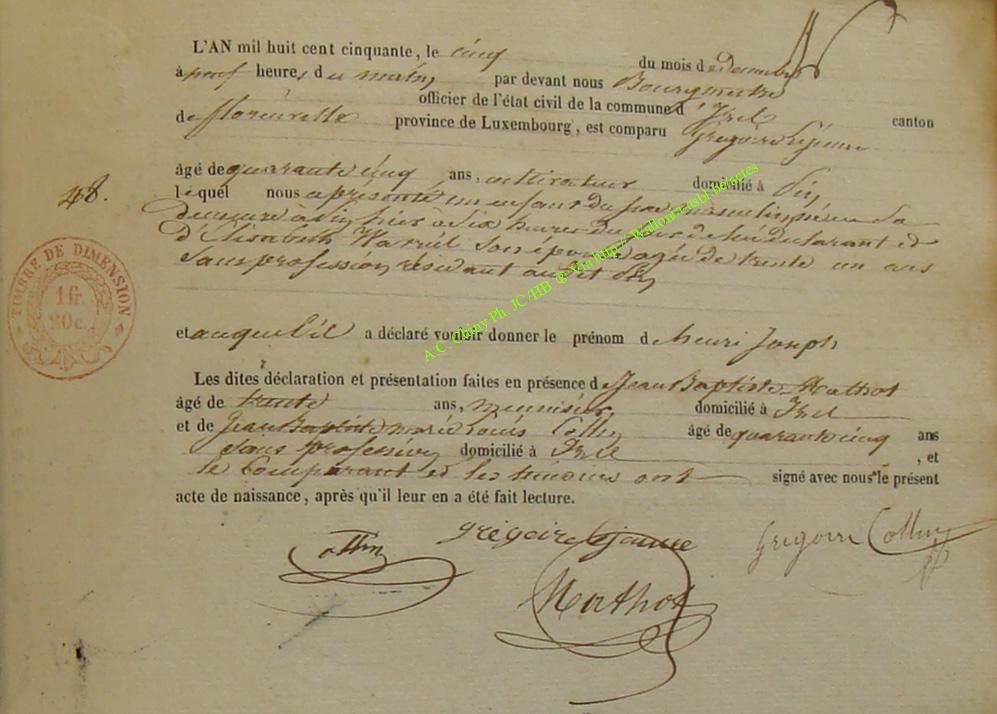 L'AN mil huit cent cinquante, le cinq du mois de Decembre
à neuf heures du matin par devant nous Bourgmestre
officier de l'état civil de la commune d'Izel canton
de florenville province de Luxembourg, est comparu Grégoire Lejeune
âgé de quarante cinq ans, cultivateur domicilié à Pin
48.
lequel nous a présenté un enfant du sexe masculin, né en sa
demeure à Pin hier à six heures du soir de lui déclarant et
d'Elisabeth son épouse agée de trente un ans
sans profession résidant audit Pin
TIMBRE DE DIMENSION.
1 fr.
20 c.
et auquel il a déclaré vouloir donner le prénom de henri Joseph
Les dites déclaration et présentation faites en présence de Jean Baptiste Mathot
âgé de trente ans, menuisier domicilié à Izel
et de Jean Baptiste marie Louis Collin âgé de quarante cinq ans
sans profession domicilié à Izel , et
le Comparant et les témoins ont signé avec nous le présent
acte de naissance, après qu'il leur en a été fait lecture.
Collin
grégoire lejeune
Grégoire Collin
Mathot
A.C. Chiny Ph. JC/HB @ Via http://Wallonia-asbl.be/actes